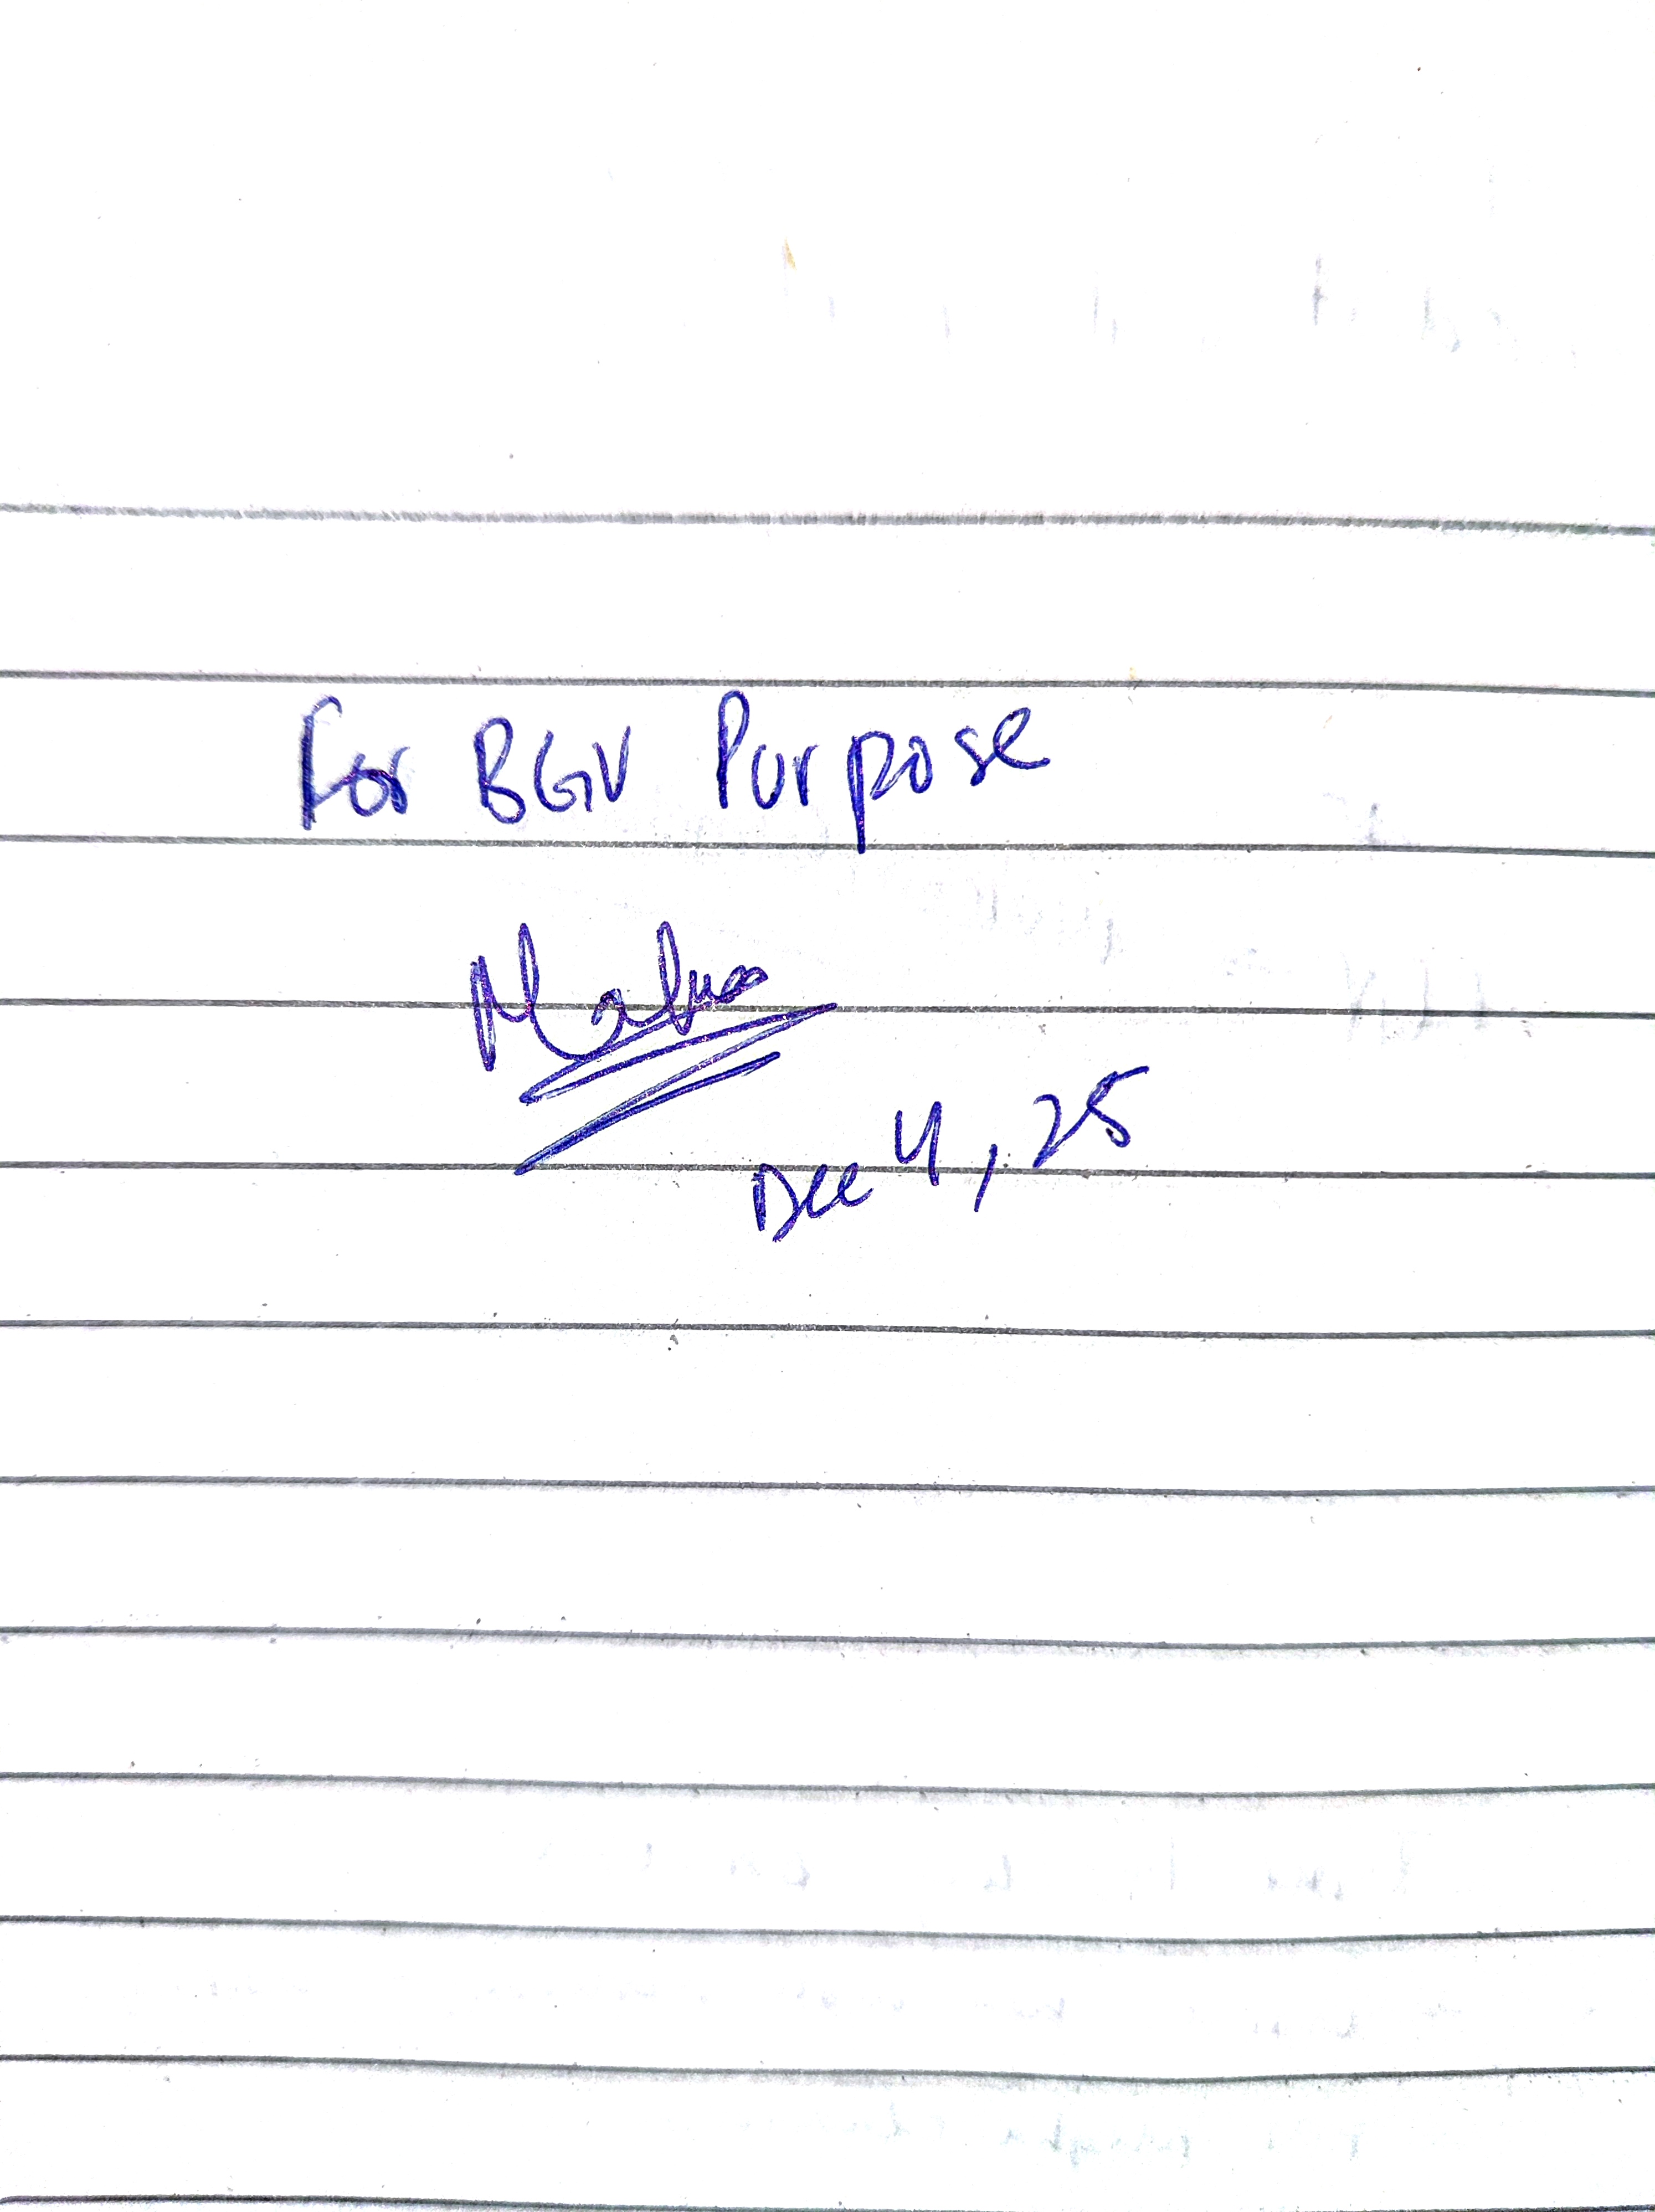 For BGV Purpose
Dec 4, 25